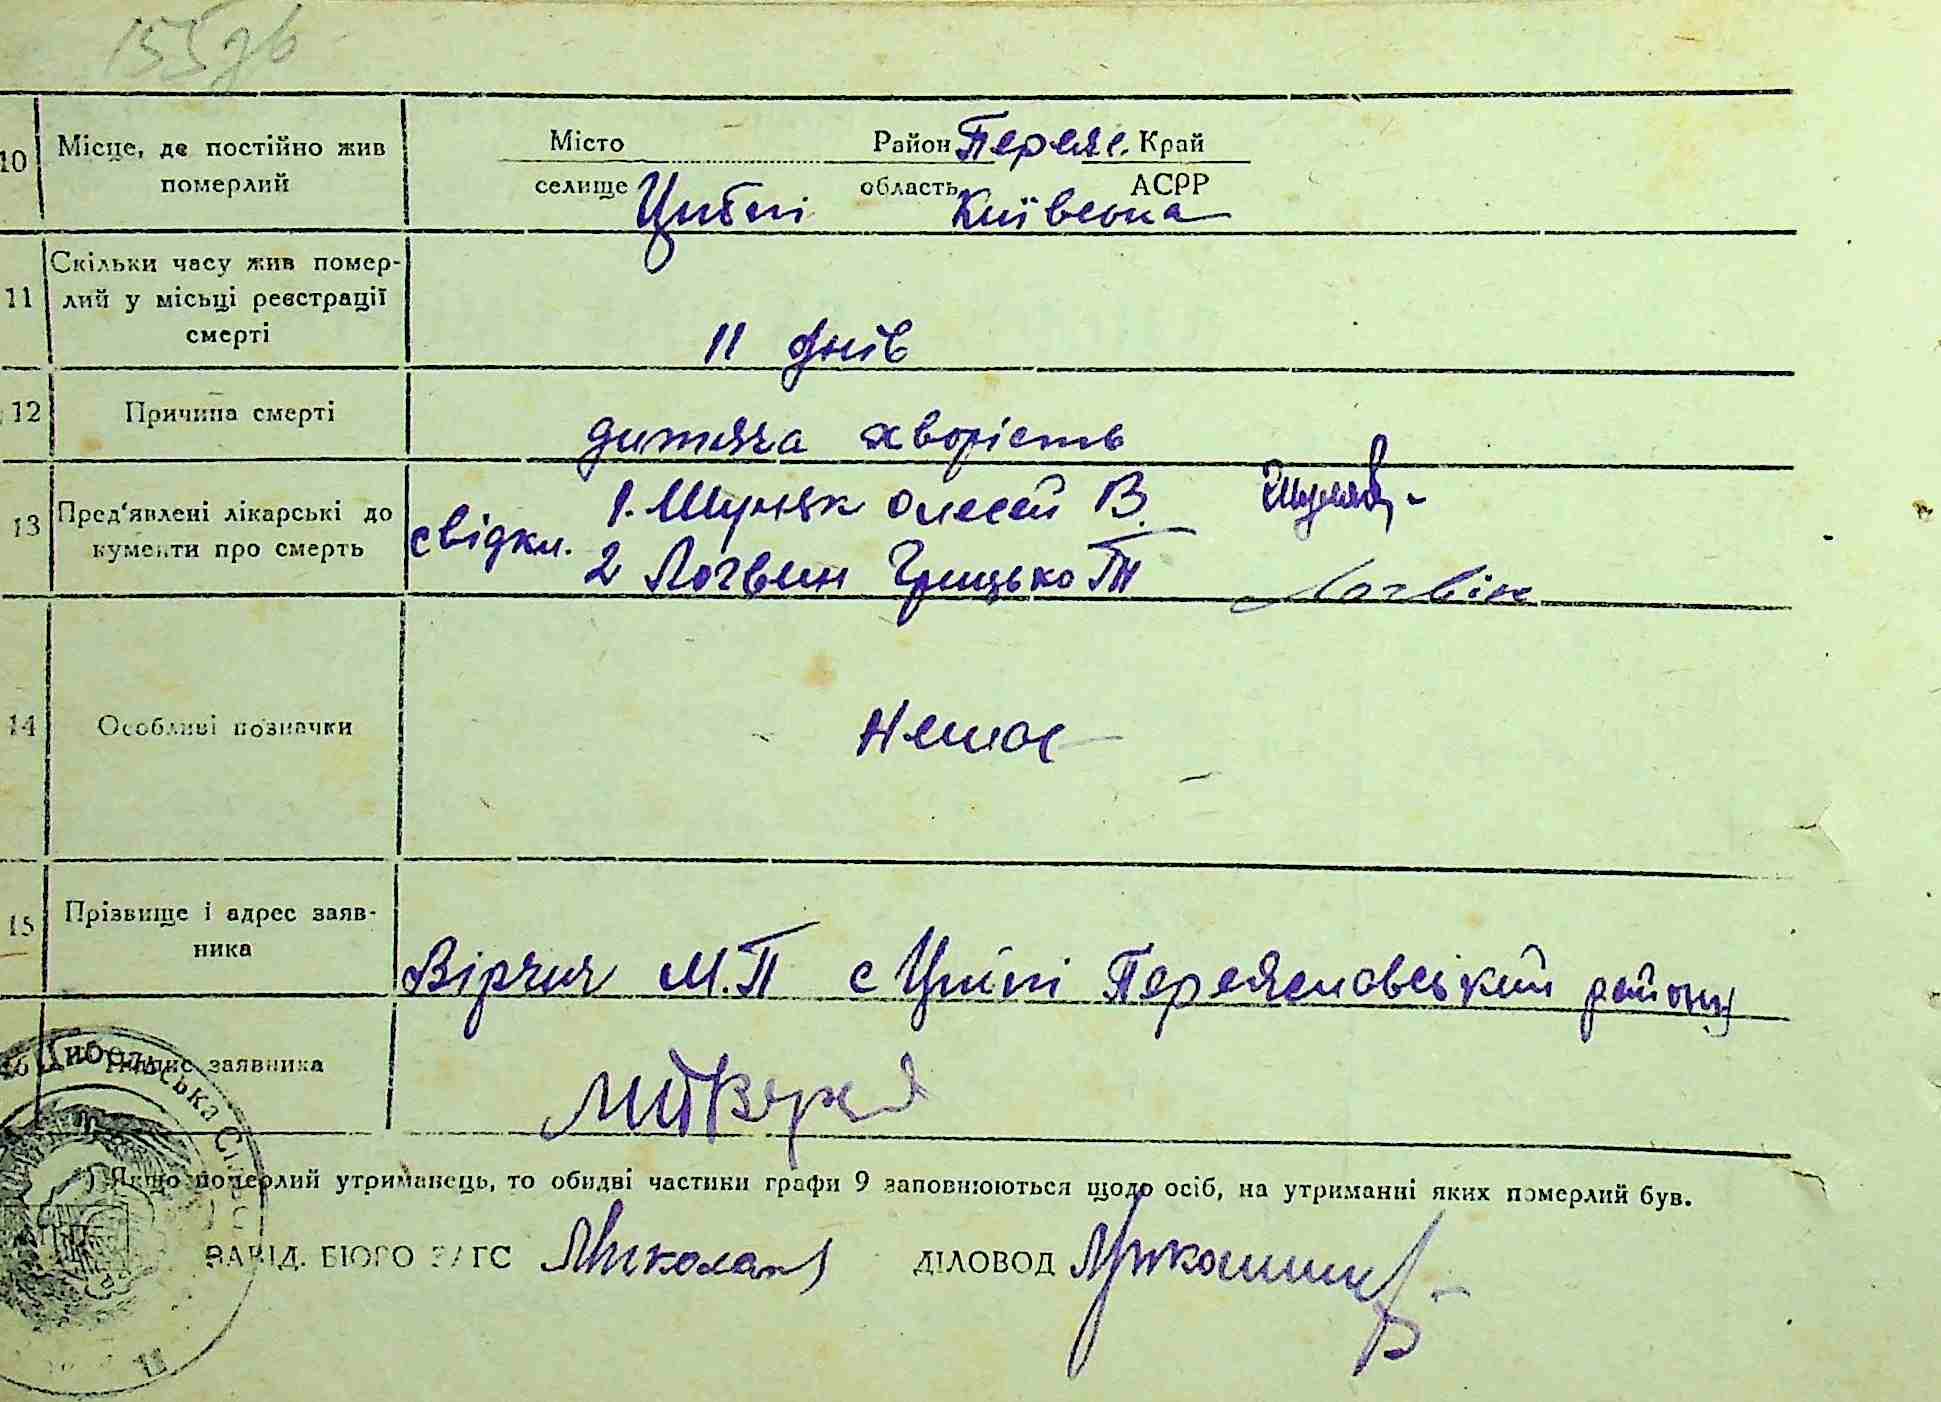 155 зв
10 Місце, де постійно жив померлий
Місто Район Переяс. Край
селище Циблі область Київська АСРР
11 Скільки часу жив помер-
лий у місьці реєстрації
смерті
11 днів
12 Причина смерті
дитяча хворість
13 Пред'явлені лікарські до
кументи про смерть
свідки. 1. Шуляк Олесей В.
2 Логвин Грицько Т Логвін
14 Особливі позначки
Немає
15 Прізвище і адрес заяв-
ника
Вірчич М.П с Циблі Переяславський району
16 Підпис заявника
Цибельська
*) Якщо померлий утриманець, то обидві частини графи 9 заповнюються щодо осіб, на утриманні яких померлий був.
ЗАВІД. БЮРО ЗАГС ДІЛОВОД